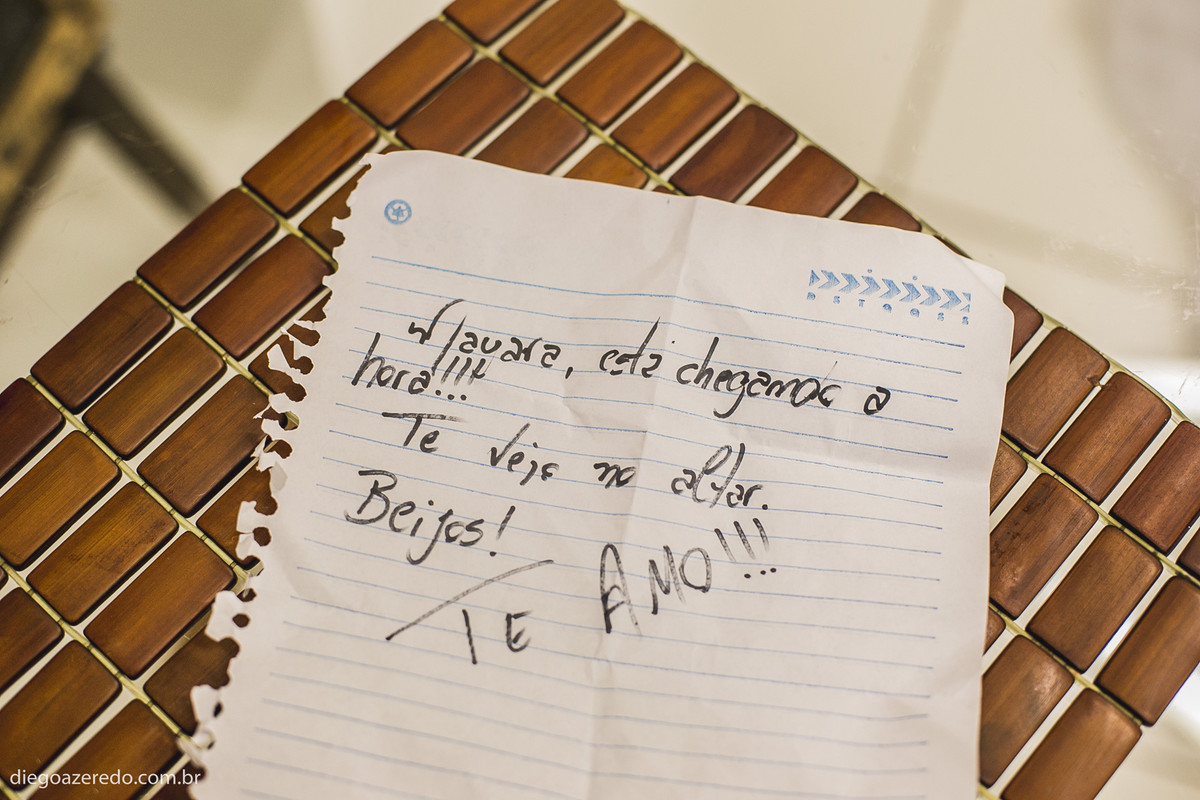 Wlauara, está chegamos a
hora!!!!
Te vejo no altar.
Beijos!
TE AMO!!!
diegoazeredo.com.br